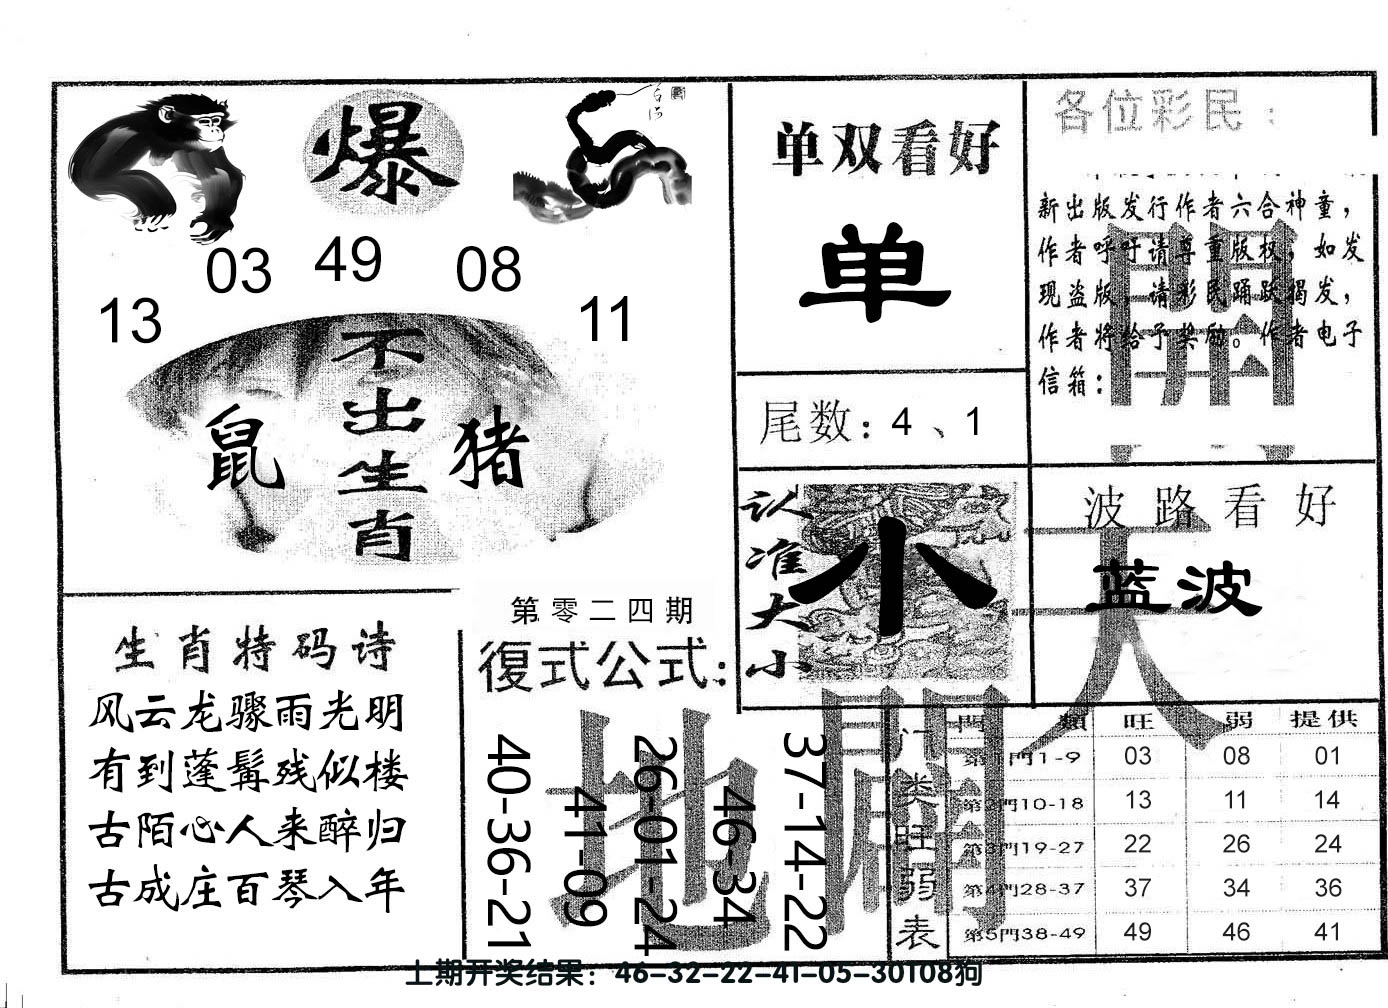 爆
03 49 08
13 11
不出生肖
鼠 猪
单双看好
单
尾数：4、1
认准大小
小
各位彩民：
新出版发行作者六合神童，
作者呼吁请尊重版权，如发
现盗版，请彩民踊跃揭发，
作者将给予奖励。作者电子
信箱：
波路看好
蓝波
生肖特码诗
风云龙骤雨光明
有到蓬髯残似楼
古陌心人来醉归
古成庄百琴入年
第零二四期
復式公式：
40-36-21
41-09
26-01-24
46-34
37-14-22
天
地
門類 旺 弱 提供
门类旺弱表
第1門1-9 03 08 01
第2門10-18 13 11 14
第3門19-27 22 26 24
第4門28-37 37 34 36
第5門38-49 49 46 41
上期开奖结果：46-32-22-41-05-30T08狗